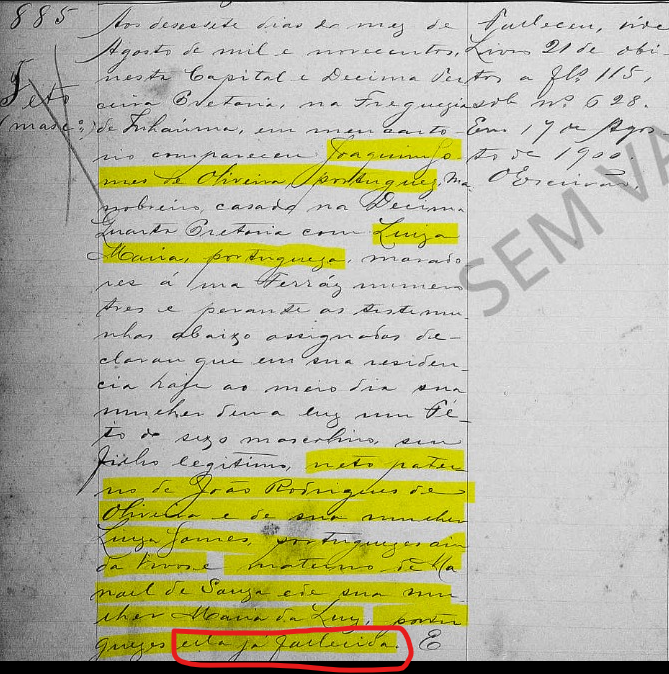 885
Feto
(masc.º)
Aos desessete dias do mez de
Agosto de mil e novecentos,
nesta Capital e Decima Ter
ceira Pretoria, na Freguezia
de Inhaúma, em meu carto-
rio compareceu Joaquim Go-
mes de Oliveira, portuguez, ma
nobreiro, casado na Decima
Quarta Pretoria com Luiza
Maria, portugueza, morado
res á rua Ferráz numero
tres e perante as testemu
nhas abaixo assignadas de-
clarou que em sua residen-
cia hoje ao meio dia sua
mulher deu a luz um Fé-
to do sexo masculino, seu
filho legitimo, neto pater
no de João Rodrigues de
Oliveira e de sua mulher
Luiza Gomes, portuguezes ain
da vivos e materno de Ma
noel de Souza e de sua mu
lher Maria da Luz, portu
guezes ella já fallecida. E
Falleceu, vide
Livro 21 de obi-
tos a fls 115,
sob nº 628.
Em 17 de Agos
to de 1900.
O Escrivão,
SEM VA